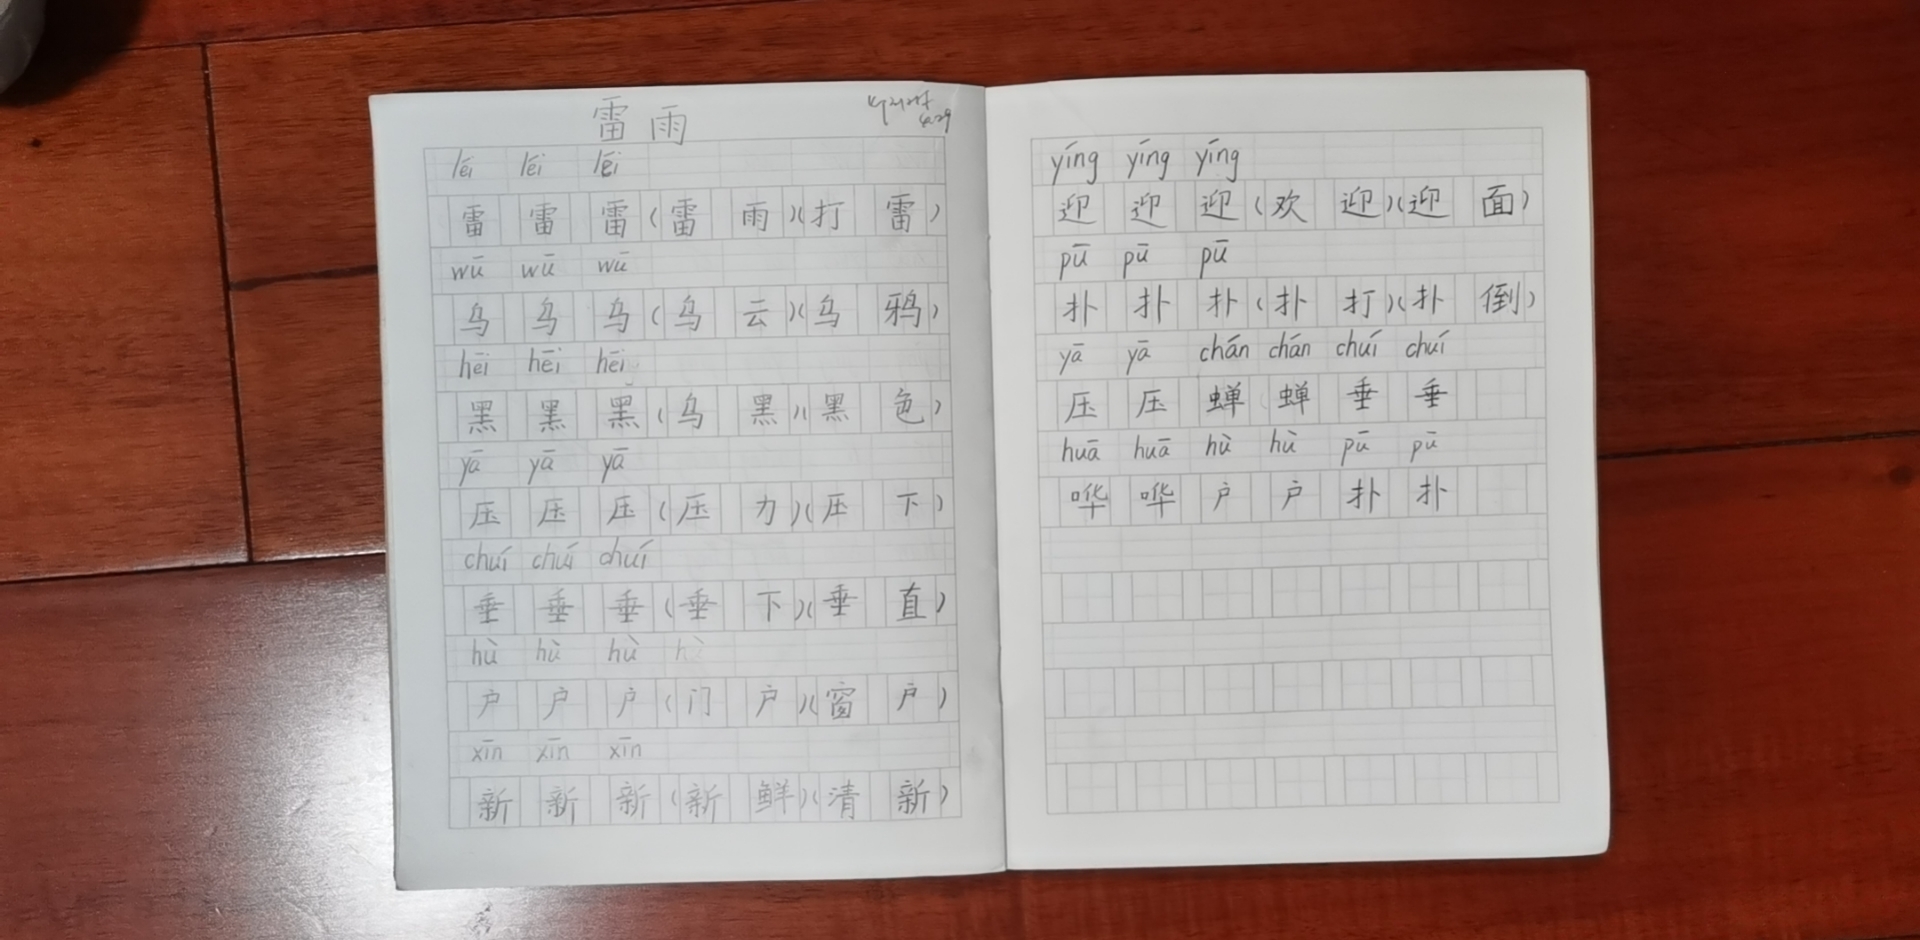 雷雨
léi léi léi
雷 雷 雷(雷雨)(打雷)
wū wū wū
乌 乌 乌(乌云)(乌鸦)
hēi hēi hēi
黑 黑 黑(乌黑)(黑色)
yā yā yā
压 压 压(压力)(压下)
chuí chuí chuí
垂 垂 垂(垂下)(垂直)
hù hù hù
户 户 户(门户)(窗户)
xīn xīn xīn
新 新 新(新鲜)(清新)
yíng yíng yíng
迎 迎 迎(欢迎)(迎面)
pū pū pū
扑 扑 扑(扑打)(扑倒)
yā yā chán chán chuí chuí
压 压 蝉 蝉 垂 垂
huā huā hù hù pū pū
哗 哗 户 户 扑 扑